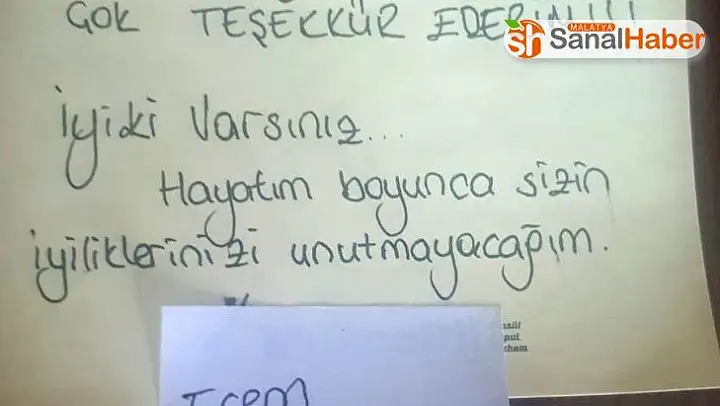 ÇOK TEŞEKKÜR EDERİM!!!
MALATYA
SanalHaber
İyiki Varsınız...
Hayatım boyunca sizin
iyiliklerinizi unutmayacağım.
İrem